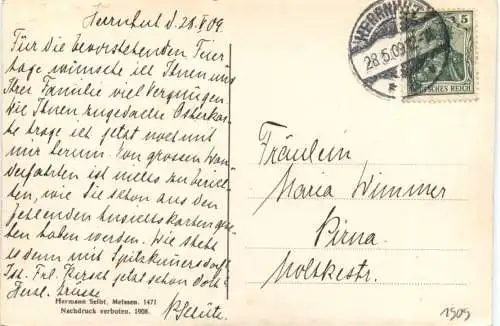 Herrnhut d. 28.V 09.
Für die bevorstehenden Feier
tage wünsche ich Ihnen und
Ihrer Familie viel Vergnügen.
die Ihnen zugedachte Osterkar-
te trage ich jetzt noch mit
mir herum. Von grossen Wan-
derfahrten ist nichts zu berich-
ten, wie Sie schon aus den
fehlenden Ansichtskarten gese-
hen haben werden. Wie steht
es denn mit Spitzkunersdorf?
Ist Frl. Hirsch jetzt schon dort?
Herzl. Grüsse
Hermann Seibt, Meissen. 1471
Nachdruck verboten. 1908.
HERRNHUT
28.5.09
5
DEUTSCHES REICH
Fräulein
Maria Wimmer
Pirna.
Moltkestr.
1909